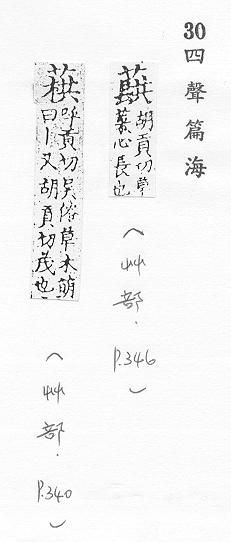 30四聲篇海
蕻
胡貢切草
菜心長也
(艸部.P.346)
呼貢切吳俗草木萌
曰丨又胡貢切茂也
(艸部.P.340)